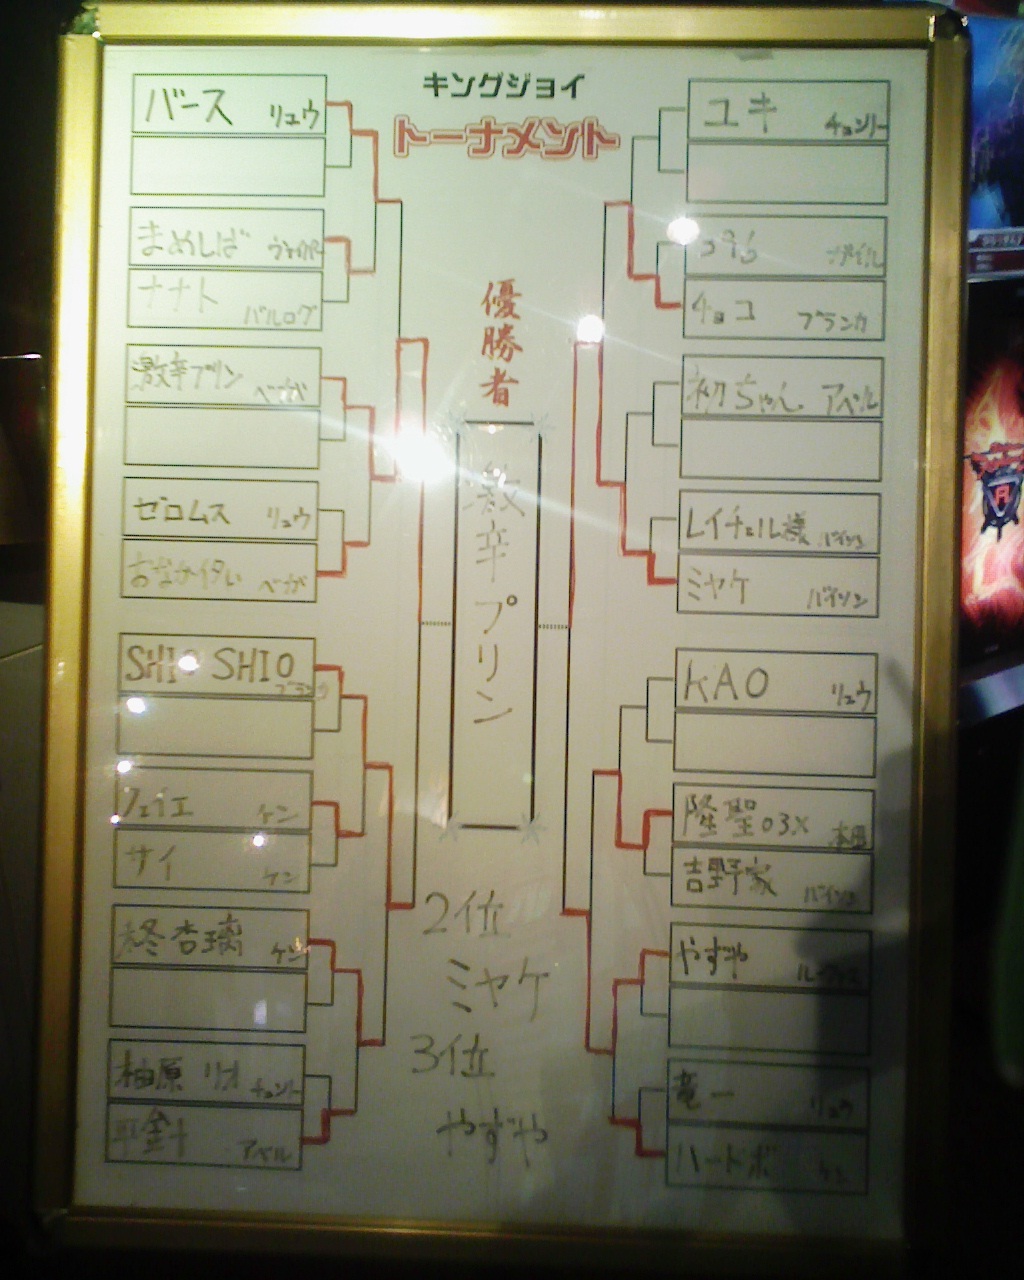 キングジョイ
トーナメント
優勝者
激辛プリン
2位
ミヤケ
3位
やずや
バース リュウ
まめしば
ナナト バルログ
激辛プリン ベガ
ゼロムス リュウ
おなかイタい ベガ
SHIO SHIO ブランカ
フェイエ ケン
サイ ケン
柊杏璃 ケン
柚原 リオ チュンリー
アベル
ユキ チュンリー
チョコ ブランカ
初ちゃん アベル
レイチェル様 バイソン
ミヤケ バイソン
KAO リュウ
隆聖03X 本田
吉野家 バイソン
やずや ルーファス
竜一 リュウ
ハードボ ケン